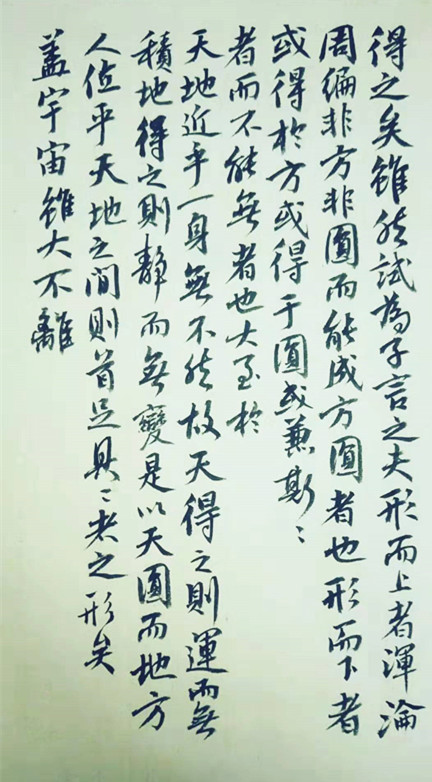 得之矣雖然試為子言之夫形而上者渾淪
周徧非方非圓而能成方圓者也形而下者
或得於方或得于圓或兼斯〻
者而不能無者也大至於
天地近乎一身無不然故天得之則運而無
積地得之則靜而無變是以天圓而地方
人位乎天地之間則首足具〻者之形矣
蓋宇宙雖大不離